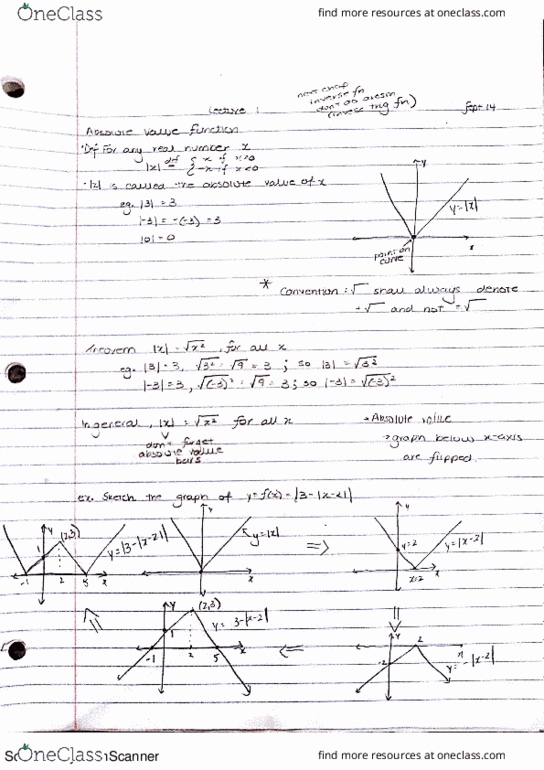 OneClass
find more resources at oneclass.com
next chap
inverse fn
don't do arcsin
(inverse trig fn)
Lecture 1
Sept 14
Absolute value function
Def For any real number x
|x| def= { x if x≥0
{ -x if x<0
|x| is called the absolute value of x
eg. |3| = 3
|-3| = -(-3) = 3
|0| = 0
y
y=|x|
x
point on
curve
* Convention: √ shall always denote
+√ and not -√
Theorem |x| = √x², for all x
eg. |3| = 3, √3² = √9 = 3 ; so |3| = √3²
|-3| = 3, √(-3)² = √9 = 3 ; so |-3| = √(-3)²
In general, |x| = √x² for all x
don't forget
absolute value
bars
→Absolute value
→graph below x-axis
are flipped
ex. Sketch the graph of y = f(x) = |3-|x-2||
y
(2,3)
1
y=|3-|x-2||
-1
2
5
x
y
y=|x|
x
⇒
y
y=2
y=|x-2|
x=2
x
y
(2,3)
1
y= 3-|x-2|
-1
2
5
x
⇐
y
2
-2
x
y= -|x-2|
OneClass
Scanner
find more resources at oneclass.com